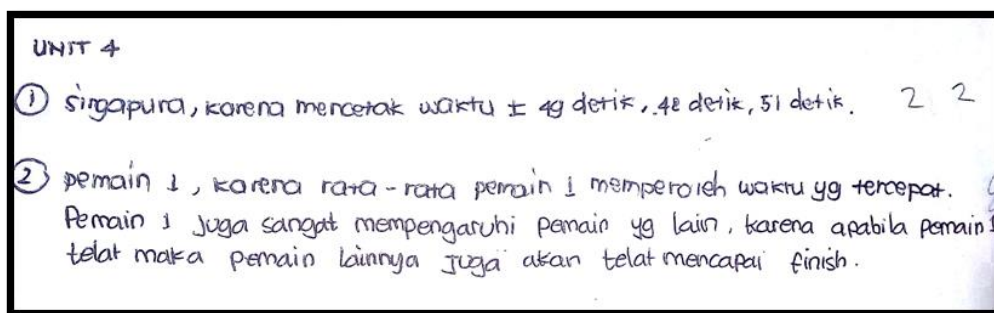 UNIT 4
① Singapura, karena mencetak waktu ± 49 detik, 48 detik, 51 detik. 2 2
② pemain 1, karena rata-rata pemain 1 memperoleh waktu yg tercepat.
Pemain 1 juga sangat mempengaruhi pemain yg lain, karena apabila pemain 1
telat maka pemain lainnya juga akan telat mencapai finish.